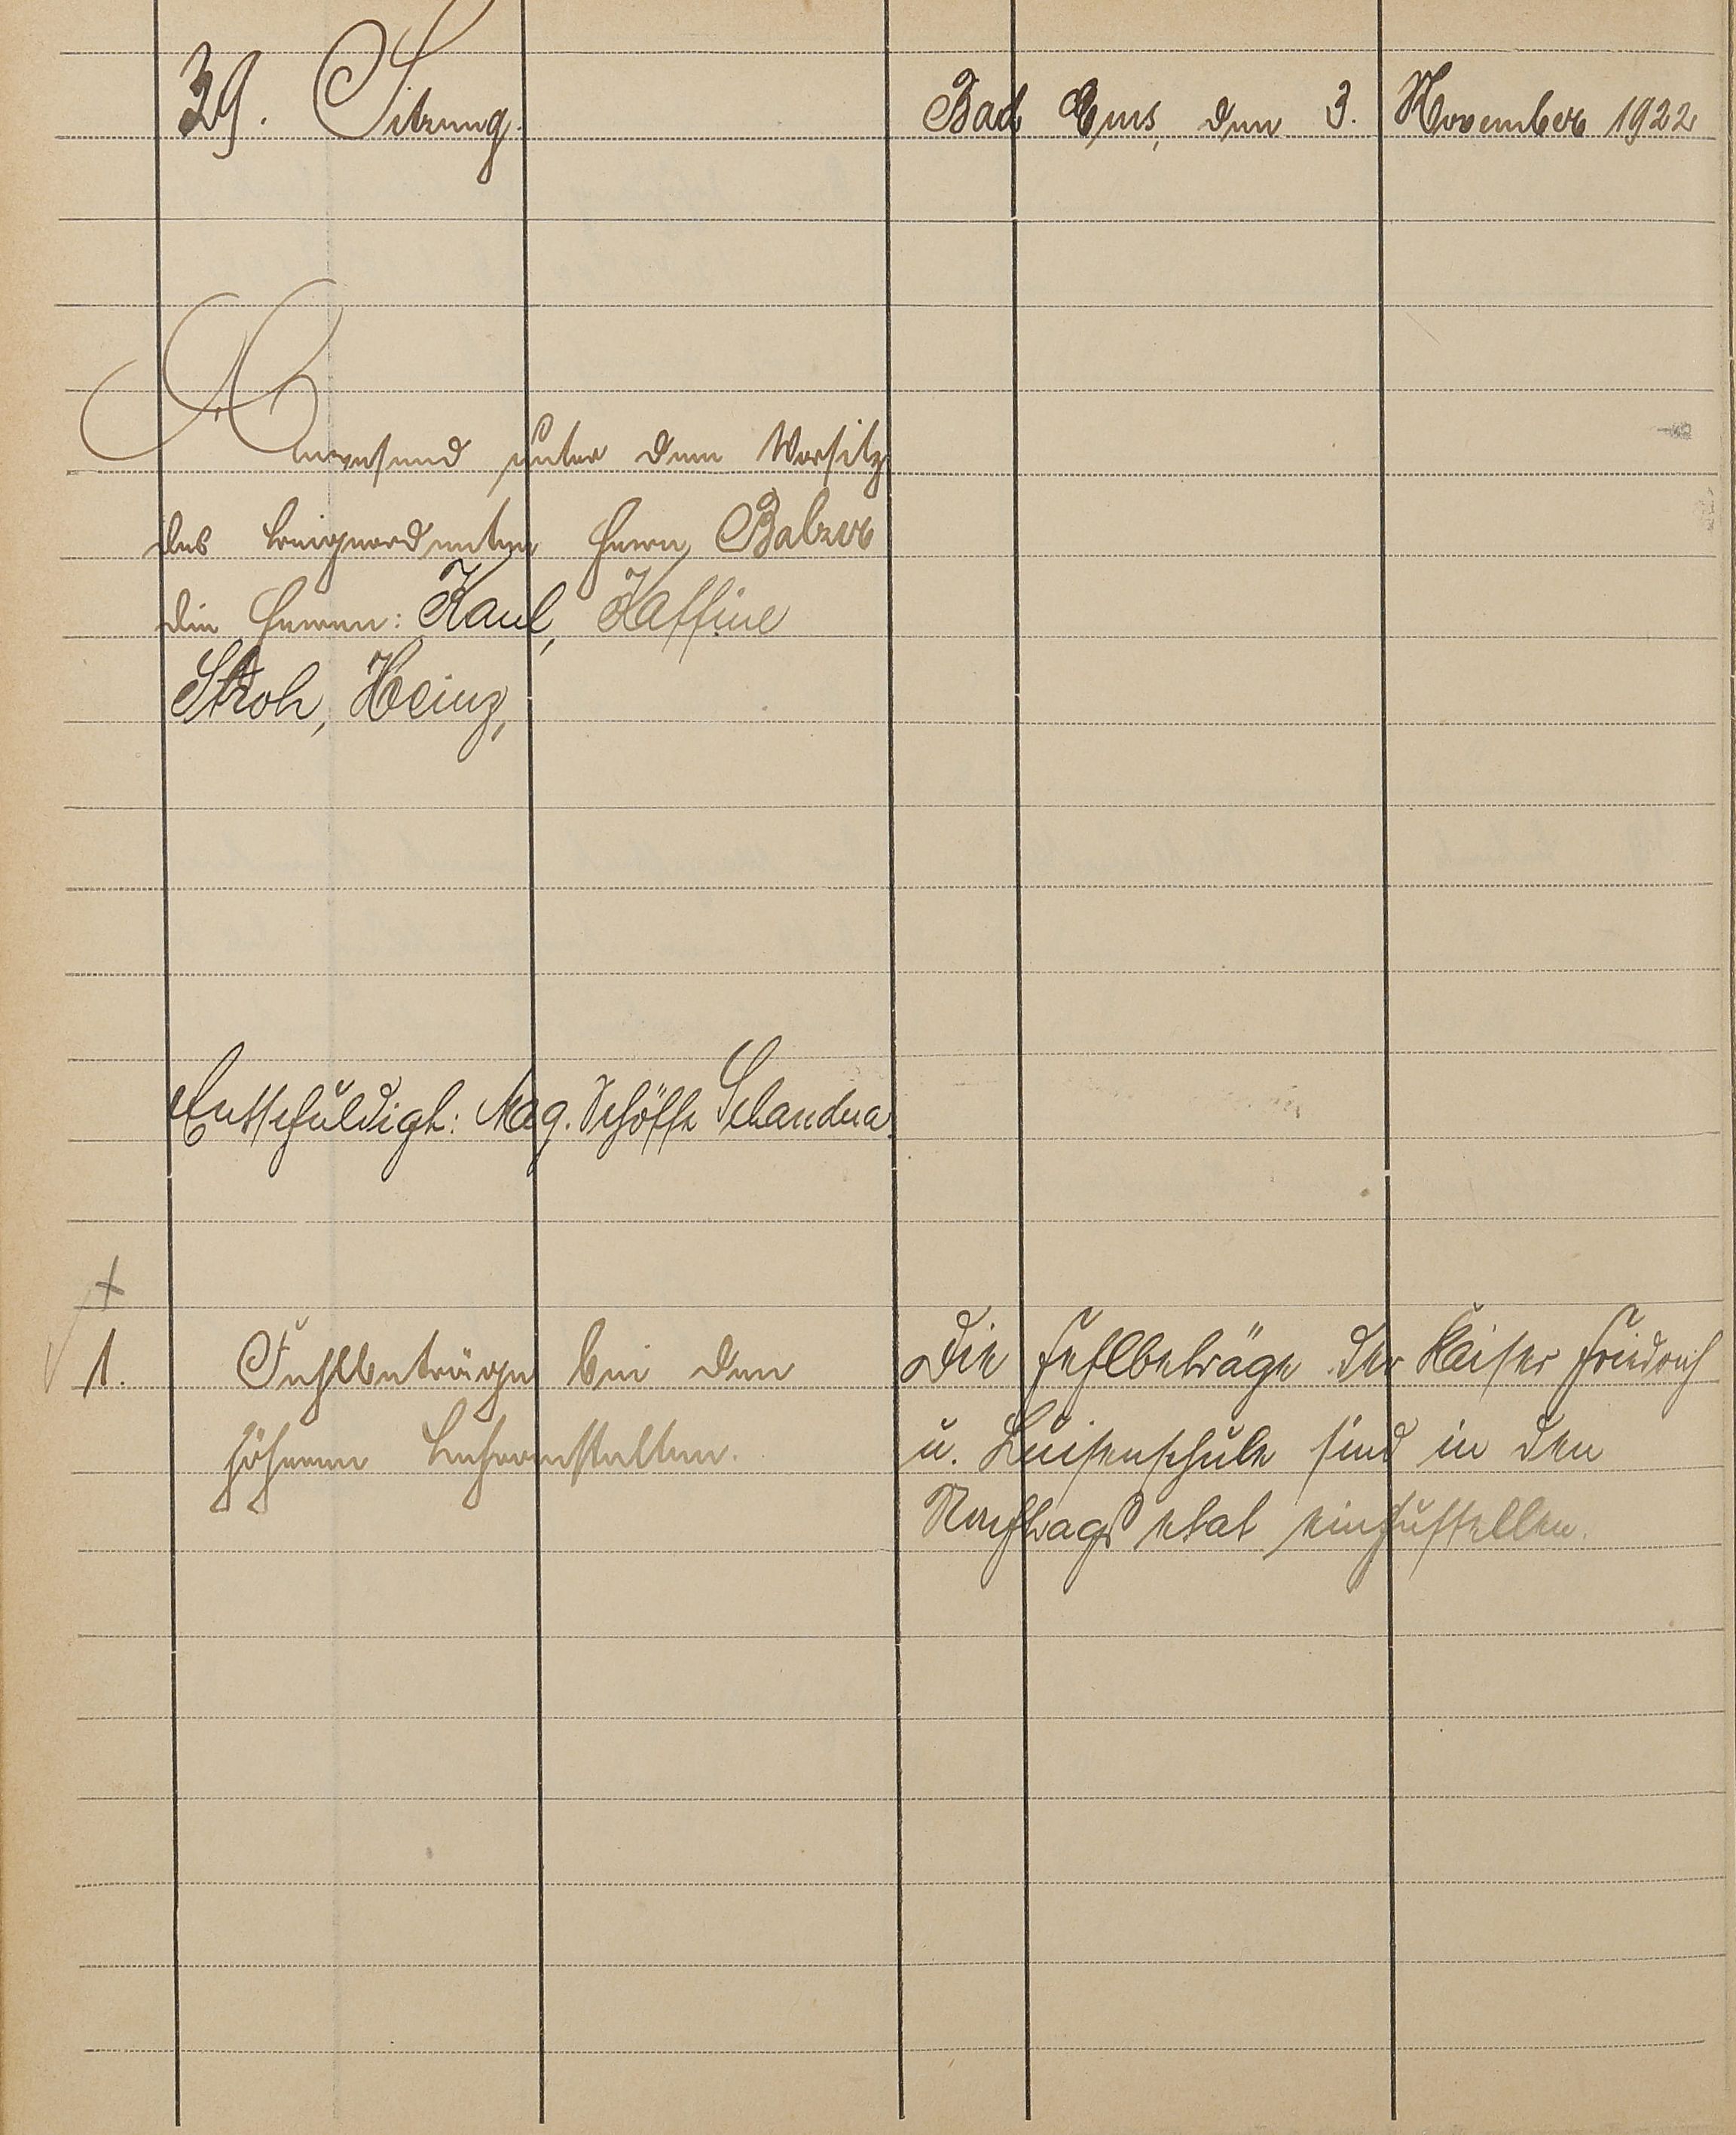 39. Sitzung.
Bad Ems, den 3. November 1922
Anwesend unter dem Vorsitz
des Beigeordneten Herrn Balzer
die Herren: Kaul, Kaffine
Stroh, Heinz,
Entschuldigt: Mag. Schöffe Schandua.
1. Fehlbeträge bei den
höheren Lehranstalten.
Die Fehlbeträge der Kaiser Friedrich
u. Luisenschule sind in den
Nachtragsetat einzustellen.